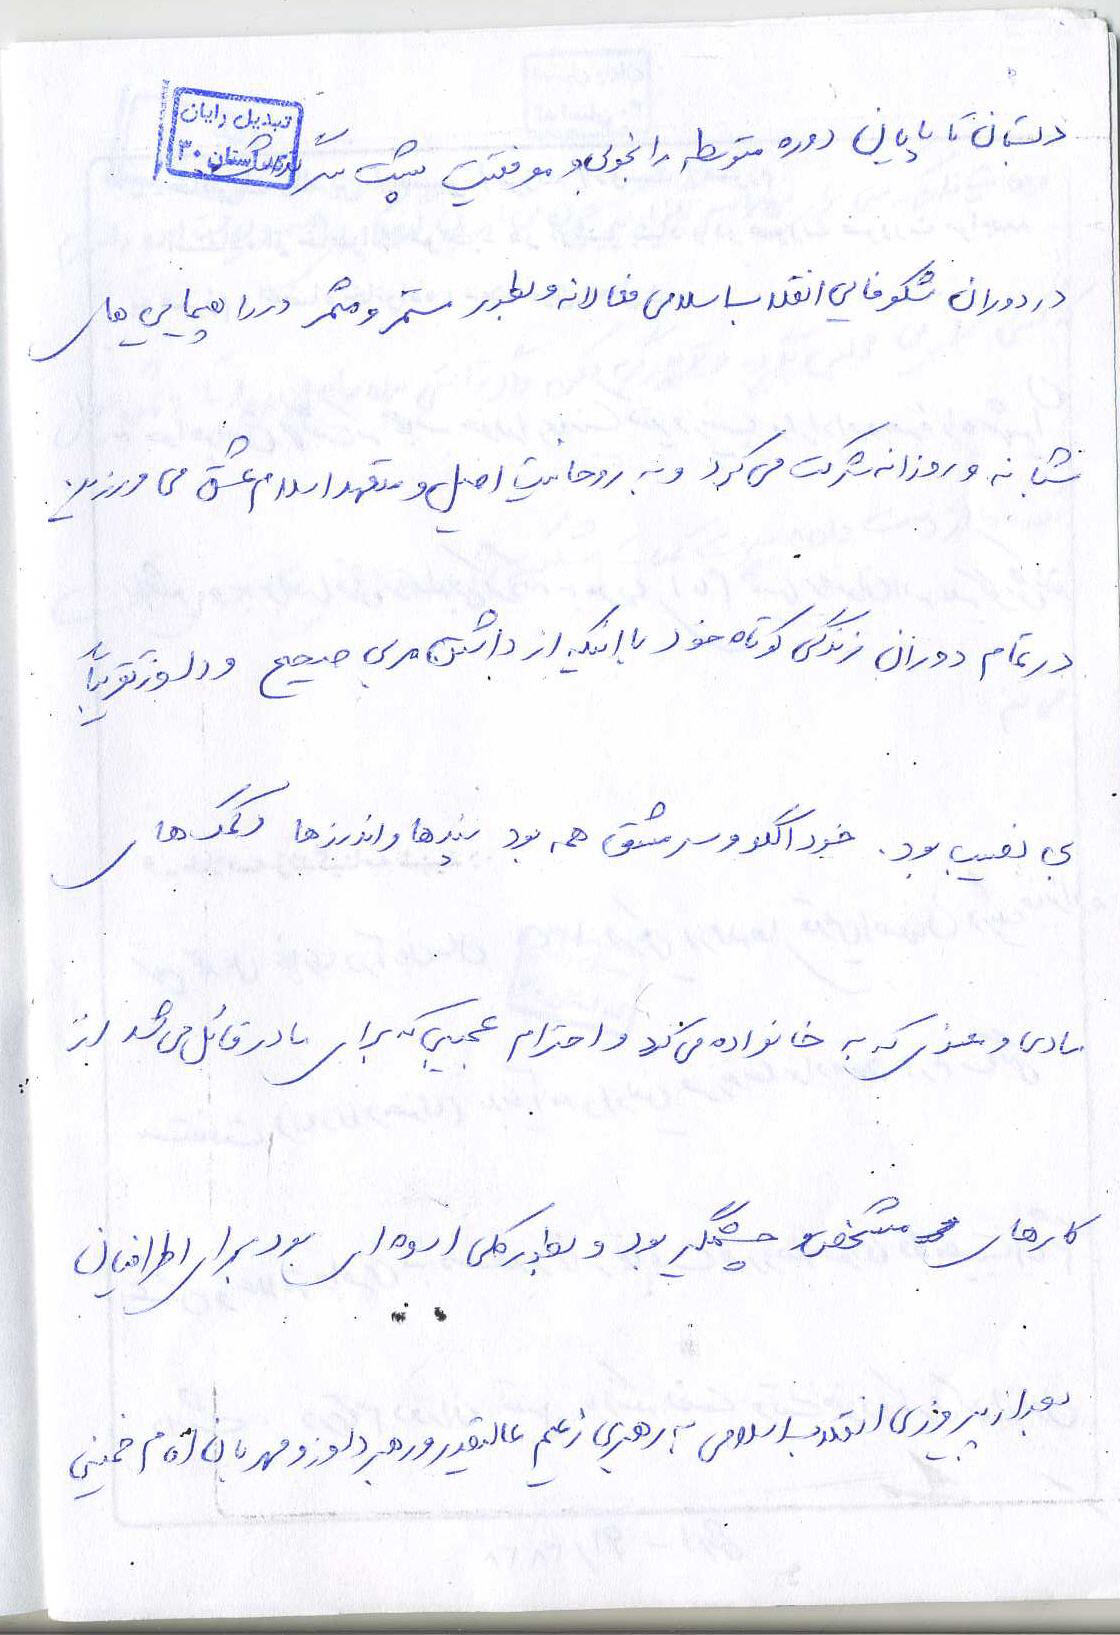 تبدیل رایان
۳۰
دبستان تا پایان دوره متوسطه را بخوبی و موفقیت پشت سر گذ
در دوران شکوفایی انقلاب اسلامی فعالانه و بطور مستمر و مثمر در راهپیمایی های
شبانه و روزانه شرکت می کرد و به روحانیت اصیل و متعهد اسلام عشق می ورزید
در تمام دوران زندگی کوتاه خود با اینکه از داشتن مربی صحیح و دلسوز تقریباً
بی نصیب بود. خود الگو و سرمشق همه بود پندها و اندرزها و کمک های
مادی و معنوی که به خانواده می کرد و احترام عجیبی که برای مادر قائل می شد از
کارهای مشخص و چشمگیر بود و بطور کلی اسوه ای بود برای اطرافیان
بعد از پیروزی انقلاب اسلامی به رهبری زعیم عالیقدر و رهبر دلسوز و مهربان امام خمینی